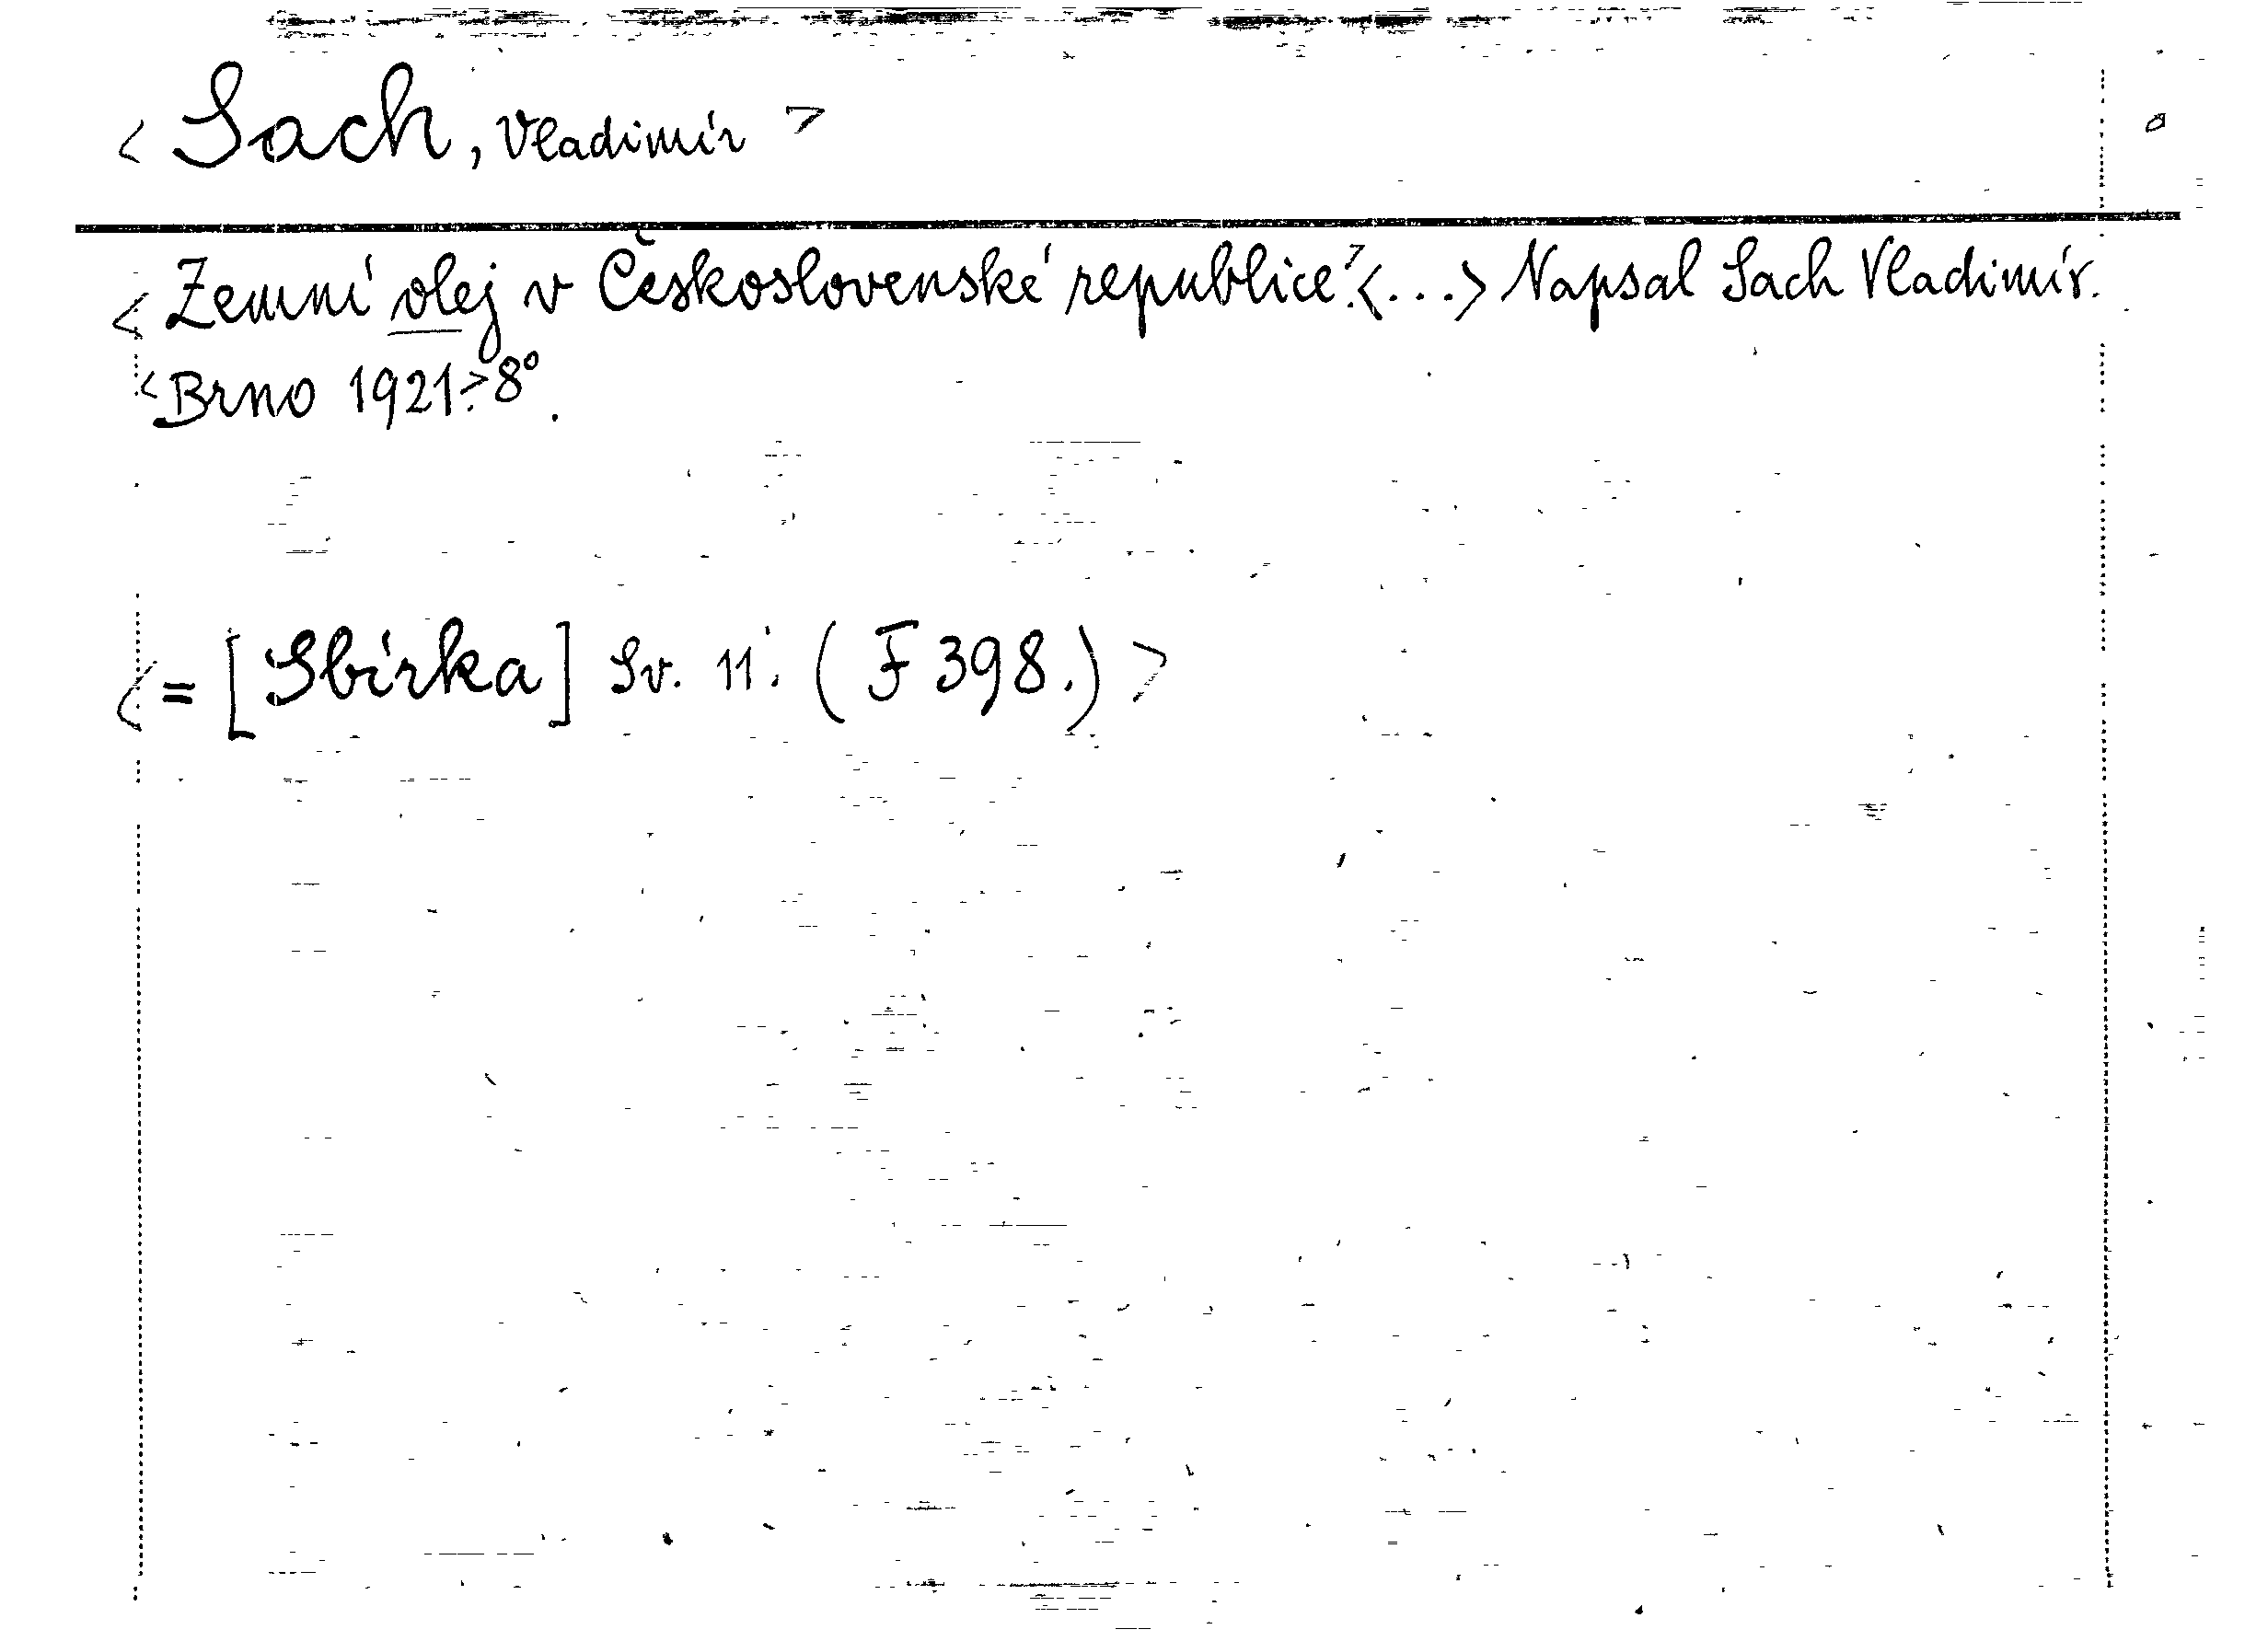 < Sach, Vladimír >
< Zemní olej v Československé republice.> <...> Napsal Sach Vladimír.
< Brno 1921.> 8°.
< = [Sbírka] Sv. 11. (F 398.) >